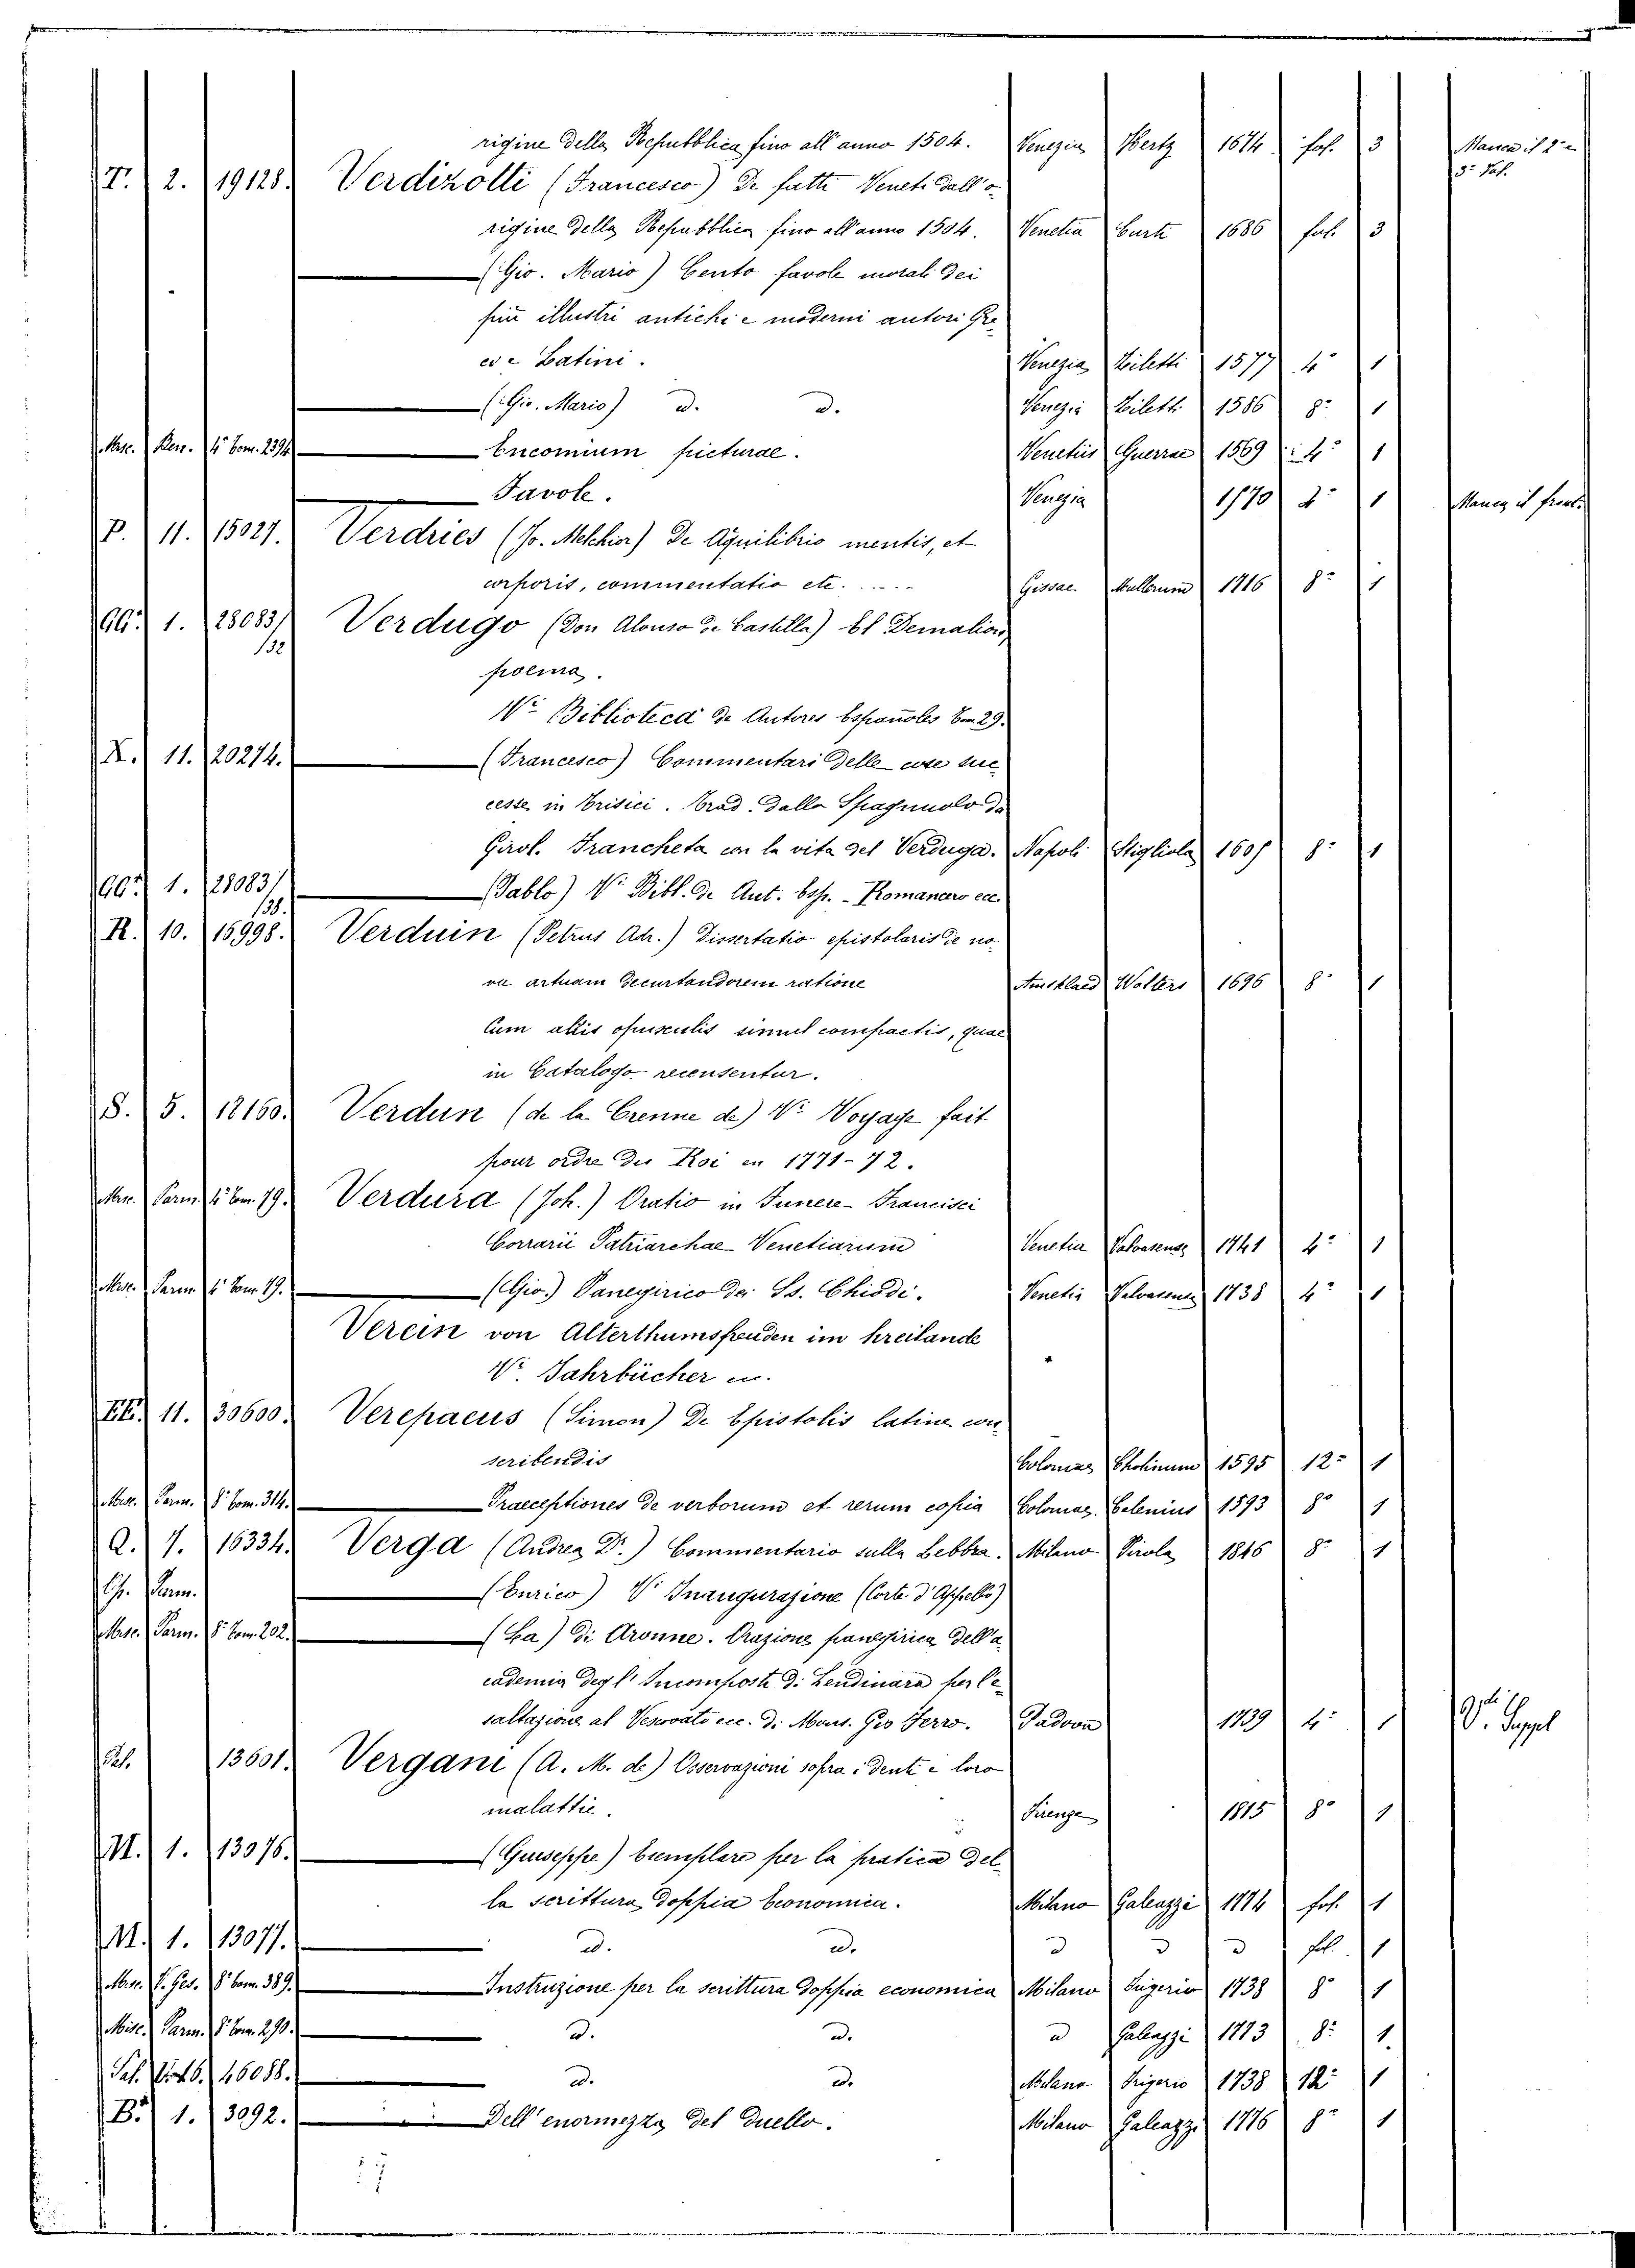 rigine della Repubblica fino all'anno 1504. Venezia Hertz 1674 fol. 3 Manca il 2° e
3° Vol.
T. 2. 19128. Verdizotti (Francesco) De fatti Veneti dall'o
rigine della Repubblica fino all'anno 1504. Venetia Curti 1686 fol. 3
(Gio. Mario) Cento favole morali dei
più illustri antichi e moderni autori Gre
ci e Latini. Venezia Ziletti 1577 4° 1
(Gio. Mario) d. d. Venezia Ziletti 1586 8° 1
Misc. Ven. 4° Tom. 2394 Encomium picturae. Venetiis Guerrae 1569 4° 1
Favole. Venezia 1770 1 Manca il front.
P. 11. 15027. Verdries (Jo. Melchior) De Aequilibrio mentis, et
corporis, commentatio etc. ..... Gissae Mullerum 1716 8° 1
GG. 1. 28083/
132 Verdugo (Don Alonso de Castilla) El Demation,
poema.
V. Biblioteca de Autores Españoles Tom 29.
X. 11. 20274. (Francesco) Commentari delle cose suc
cesse in Frisici. Trad. dallo Spagnuolo da
Girol. Francheta con la vita del Verdugo. Napoli Stigliola 1605 8° 1
GG. 1. 28083/
138. (Pablo) V. Bibl. de Aut. Esp. - Romancero ecc.
R. 10. 15998. Verduin (Petrus Adr.) Dissertatio epistolaris de no
va artuum decurtandorum ratione Amstelaed Wolters 1696 8° 1
Cum aliis opusculis simul compactis, quae
in Catalogo recensentur.
S. 5. 12160. Verdun (de la Crenne de) V. Voyage fait
pour ordre du Roi en 1771-72.
Misc. Parm. 4° Tom. 79. Verdura (Joh.) Oratio in Funere Francisci
Corrarii Patriarchae Venetiarum Venetia Valvasense 1741 4° 1
Misc. Parm. 4° Tom 79. (Gio.) Panegirico de' Ss. Chiodi. Venetia Valvasense 1738 4° 1
Verein von Alterthumsfreuden im hreilande
V. Jahrbücher
EE. 11. 30600. Verepaeus (Simon) De Epistolis latine con
scribendis Coloniae Cholinum 1595 12° 1
Misc. Parm. 8° Tom. 314. Praeceptiones de verborum et rerum copia Coloniae, Calenius 1593 8° 1
Q. 7. 16334. Verga (Andrea Dr.) Commentario sulla Lebbra. Milano Pirola 1846 8° 1
Parm. (Enrico) V. Inaugurazione (Corte d'Appello)
Misc. Parm. 8° Tom. 202. (La) di Aronne. Orazione panegirica dell'a
cademia degl' Incomposti di Lendinara per l'e
saltazione al Vescovato ecc. di Mons. Gio Ferro. Padova 1739 4° 1 V. Suppl
Pal. 13601. Vergani (A. M. de) Osservazioni sopra i denti e loro
malattie. Firenze 1815 8° 1
M. 1. 13076. (Giuseppe) Esemplare per la pratica del
la scrittura doppia Economica. Milano Galeazzi 1774 fol. 1
M. 1. 13077. d. d. d d d fol. 1
Misc. V. Ges. 8° Tom. 389. Instruzione per la scrittura doppia economica Milano Frigerio 1738 8° 1
Misc. Parm. 8° Tom. 290. d. d. d Galeazzi 1773 8° 1.
Pal. 16088. d. d. Milano Frigerio 1738 12° 1
B. 1. 3092. Dell'enormezza del Duello. Milano Galeazzi 1776 8° 1